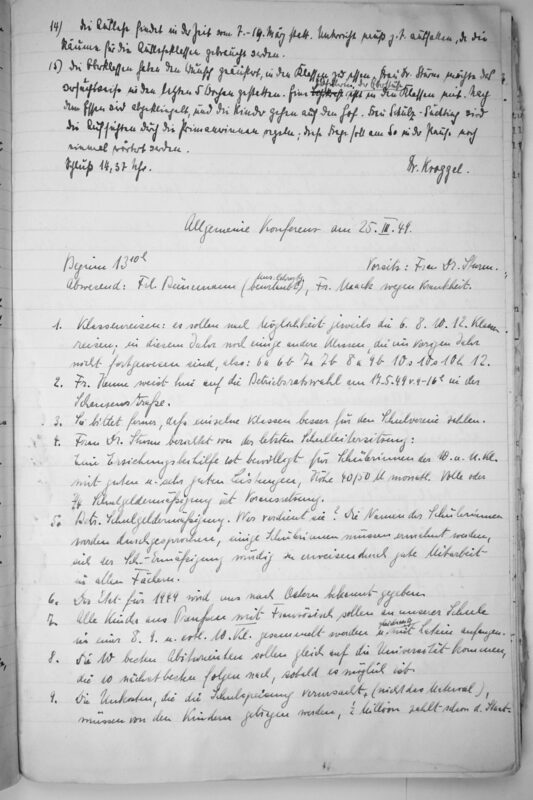 14) Die Auslese findet in der Zeit vom 7.-19. März statt. Unterricht muß z.T. ausfallen, da die
Räume für die Ausleseklassen gebraucht werden.
15) Die Oberklassen haben den Wunsch geäußert, in den Klassen zu essen. Frau Dr. Sturm möchte das
in den letzten 5 Wochen gestatten. Eine in den Klassen mit. Nach
dem Essen wird abgeklingelt, und die Kinder gehen auf den Hof. Frau Schulz- wird
die Aufsichten durch die Primanerinnen regeln; diese Frage soll am So in der Pause noch
einmal erörtert werden.
Schluß 14,37 Uhr. Dr. Kroggel.
Allgemeine Konferenz am 25. III. 49.
Beginn 13 10 Vorsitz: Frau Dr. Sturm.
Abwesend: Frl. Bünemann (beurlaubt), Fr. Maack wegen Krankheit.
1. Klassenreisen: es sollen nach Möglichkeit jeweils die 6. 8. 10. 12. Klassen
reisen. in diesem Jahr noch einige andere Klassen, die im vorigen Jahr
nicht fortgewesen sind, also: 6a 6b 7a 7b 8a 9b 10s 10s 10h 12.
2. Fr. weist hin auf die Betriebsratswahl am 17.5.49 v. 9-16h in der
3. Sie bittet ferner, daß einzelne Klassen besser für den Schulverein zahlen.
4. Frau Dr. Sturm berichtet von der letzten Schulleitersitzung:
Eine Erziehungsbeihilfe ist bewilligt für Schülerinnen der M. u. U. Kl.
mit guten u. sehr guten Leistungen, Höhe 40/50 M monatl. Volle oder
3/4 Schulgeldermäßigung ist Voraussetzung.
5. Betr. Schulgeldermäßigung. Wer verdient sie? Die Namen der Schülerinnen
werden durchgesprochen, einige Schülerinnen müssen ermahnt werden,
sich der Sch.-Ermäßigung würdig zu erweisen durch gute Mitarbeit
in allen Fächern.
6. Der Etat für 1949 wird uns nach Ostern bekannt gegeben.
7. Alle Kinder aus mit Französisch sollen an unserer Schule
in einer 8. 9. u. evtl. 10. Kl. gesammelt werden u. mit Latein anfangen.
8. Die 10 besten Abiturienten sollen gleich auf die Universität kommen,
die 10 nächstbesten folgen nach, sobald es möglich ist.
9. Die Unkosten, die die Schulspeisung verursacht, (nicht das Material),
müssen von den Kindern getragen werden, 1/2 Million zahlt schon d. Staat.